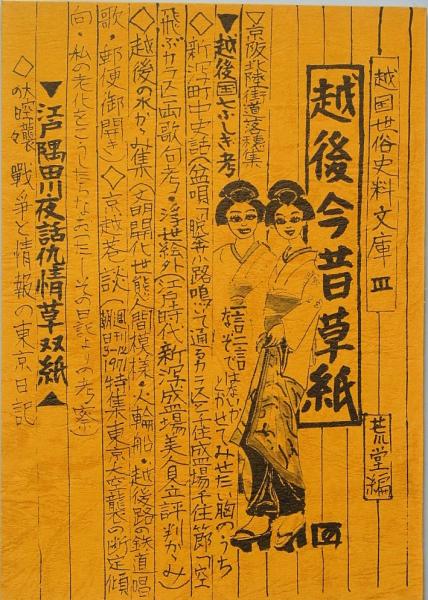 越国世俗史料文庫 Ⅲ
越後今昔草紙
荒堂編
四
▽京阪北陸街道落穂集
▼越後国七ふしぎ考
一言二言
なぞではないが
とかせてみせたい胸のうち
新潟町中史話(盆唄
小路鳴いて通るカラスに住盛場千住節「空
飛ぶカラス」画歌句考・浮世絵外江戸時代新潟盛場美人見立評判かゞみ
◇越後の水かゞみ集(文明開化世態人間模様・火輪船・越後路の鉄道唱
歌・郵便御開き)◇京越巷談(週刊朝日
特集東京大空襲の断定傾
向・私の老化を
その日記よりの考察)
▼江戸隅田川夜話仇情草双紙▲
◇大空襲
戦争と情報の東京日記